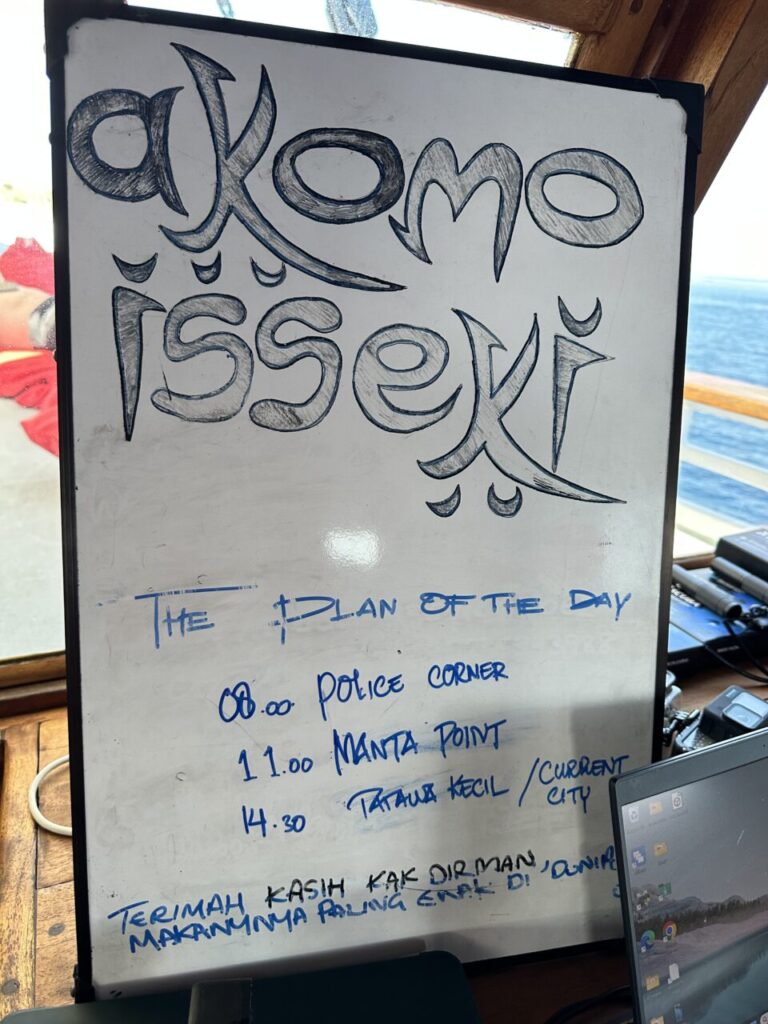 aKOMO
işşeKi
THE PLAN OF THE DAY
08.00 POLICE CORNER
11.00 MANTA POINT
14.30 TATAWA KECIL / CURRENT CITY
TERIMAH KASIH KAK DIRMAN
MAKANYNYA PALING ENAK DI DUNIA